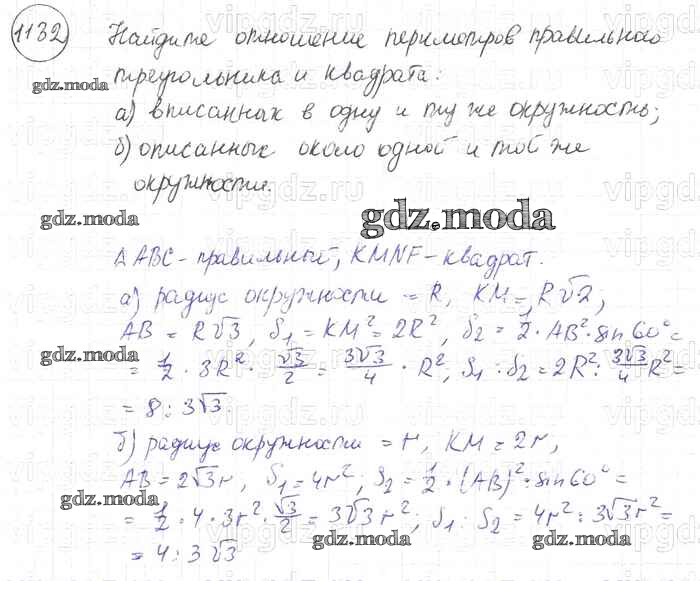 1132 Найдите отношение периметров правильного
треугольника и квадрата:
gdz.moda
а) вписанных в одну и ту же окружность;
б) описанных около одной и той же
окружности.
gdz.moda
gdz.moda
Δ ABC - правильный, KMNF - квадрат.
а) радиус окружности = R, KM = R√2;
AB = R√3, S₁ = KM² = 2R², S₂ = 1/2 · AB² · sin 60° =
gdz.moda
= 1/2 · 3R² · √3/2 = 3√3/4 · R², S₁ : S₂ = 2R² : 3√3/4 R² =
= 8 : 3√3.
б) радиус окружности = r, KM = 2r,
AB = 2√3r, S₁ = 4r², S₂ = 1/2 · (AB)² · sin 60° =
gdz.moda
= 1/2 · 4 · 3r² · √3/2 = 3√3r², S₁ : S₂ = 4r² : 3√3r² =
gdz.moda
gdz.moda
= 4 : 3√3